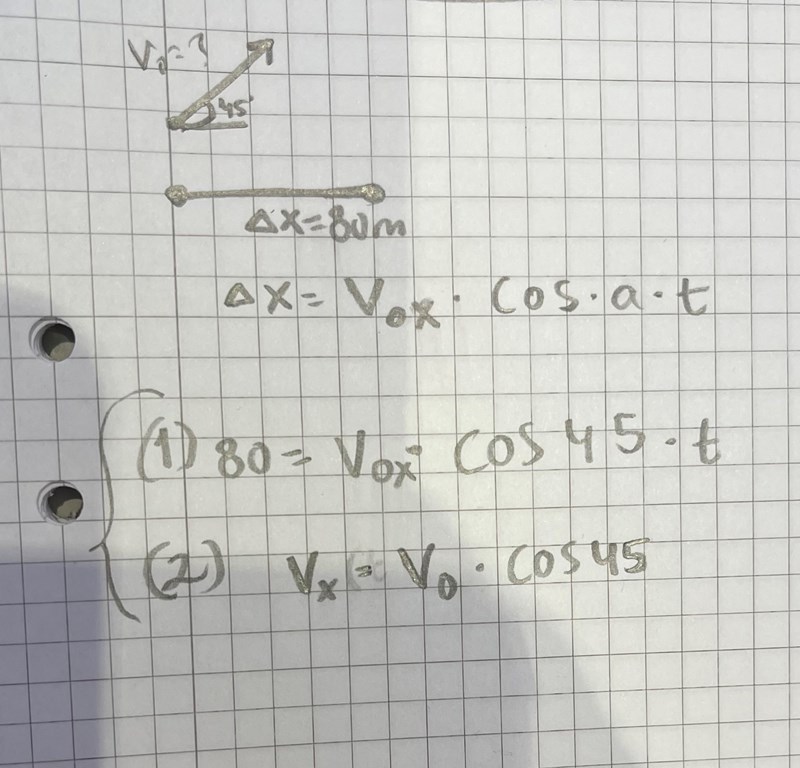 V₀=?
45°
Δx=80m
Δx = V₀ₓ · cos·a·t
(1) 80 = V₀ₓ · cos 45 · t
(2) Vₓ = V₀ · cos 45